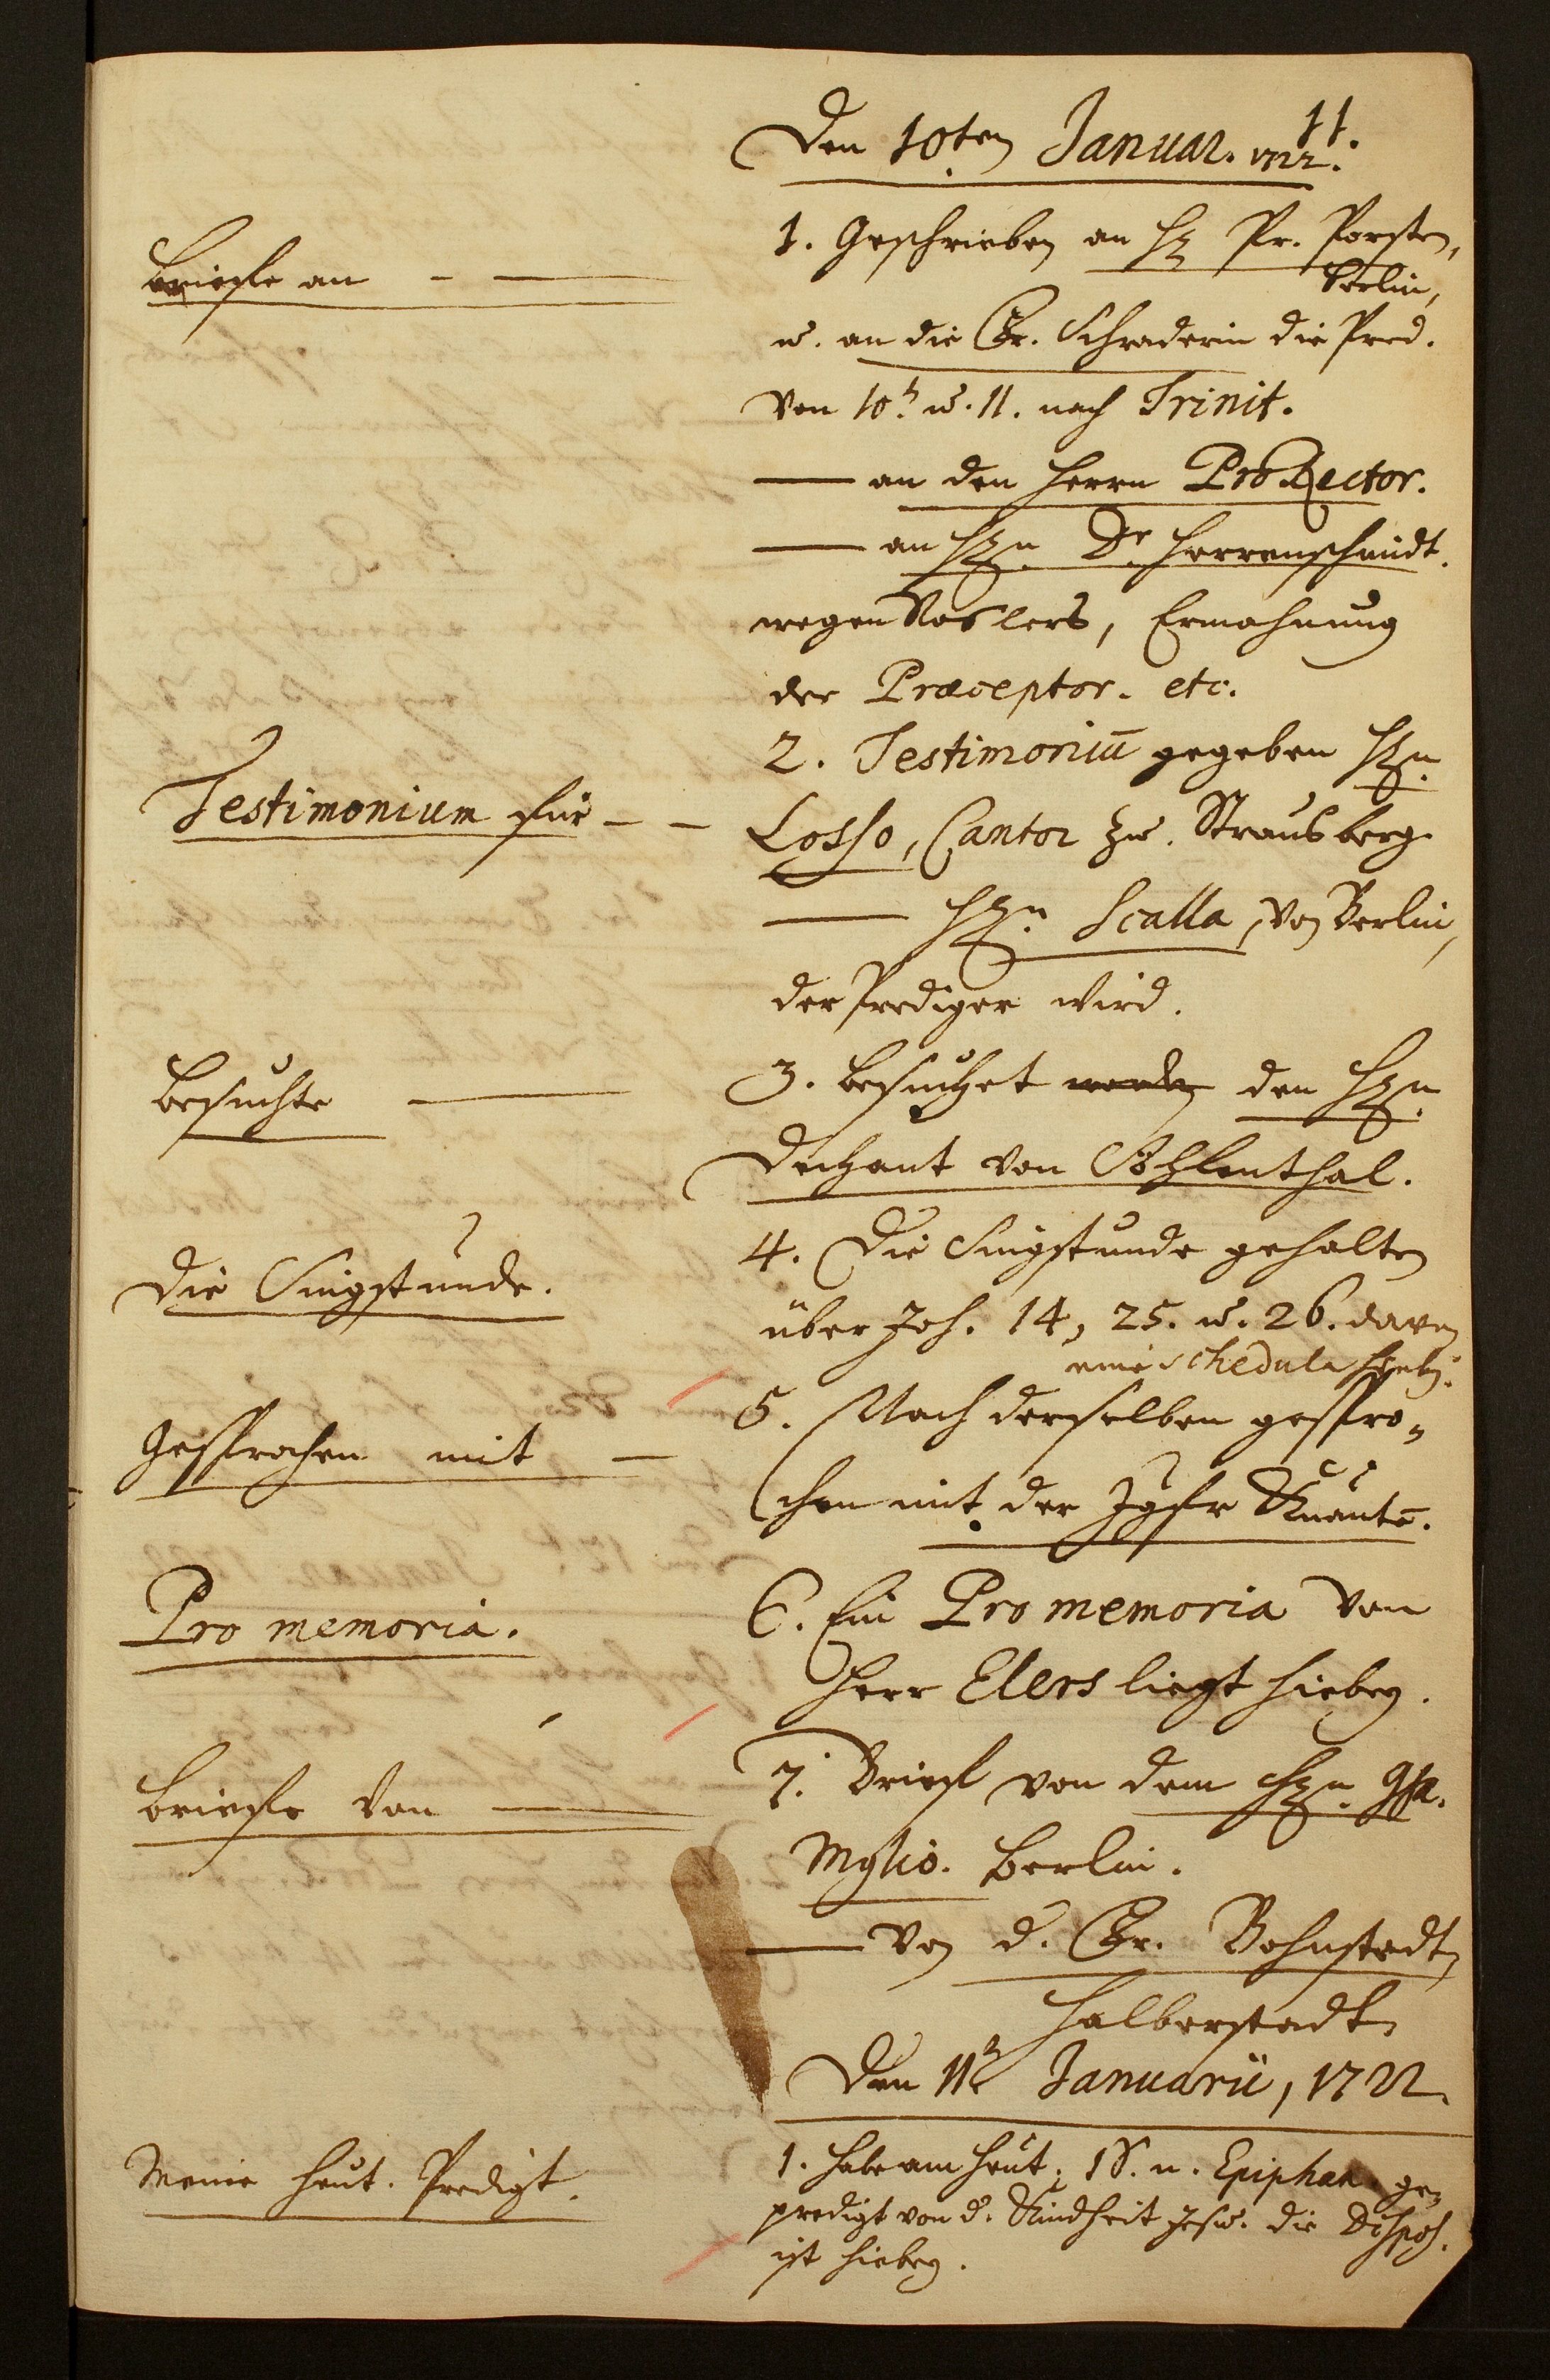 11.
Den 10ten Januar. 1722.
Briefe an - —
1. Geschrieben an H. Pr. Porsten,
Berlin,
u. an die Fr. Schraderin die Pred.
von 10. u. 11. nach Trinit.
— an den Herrn ProRector.
— an Hn. Dr. Herrenschmidt.
wegen Voslers, Ermahnung
der Præceptor. etc.
Testimonium für - -
2. Testimoniū gegeben Hn.
Losso, Cantor zu Strausberg
— Hn. Scalla, von Berlin,
der Prediger wird.
Besuchte —
3. besuchet werden den Hn.
Dechant von
4. Die Singstunde gehalten
Die Singstunde.
über Joh. 14, 25. u. 26. davon
eine schedula hiebey.
Gesprochen mit —
5. Nach derselben gespro-
chen mit der Jgfr Knauts.
Pro memoria.
6. Ein Pro memoria von
Herr Elers liegt hiebey.
Briefe von —
7. Brief von dem Hn.
Mylio. Berlin.
— von d. Fr. Bohnstedt,
Halberstadt
Den 11t Januarii, 1722.
Meine heut. Predigt.
1. Habe am heut. 1 S. n. Epiphan. ge-
predigt von d. Kindheit Jesu. die Dispos.
ist hiebey.